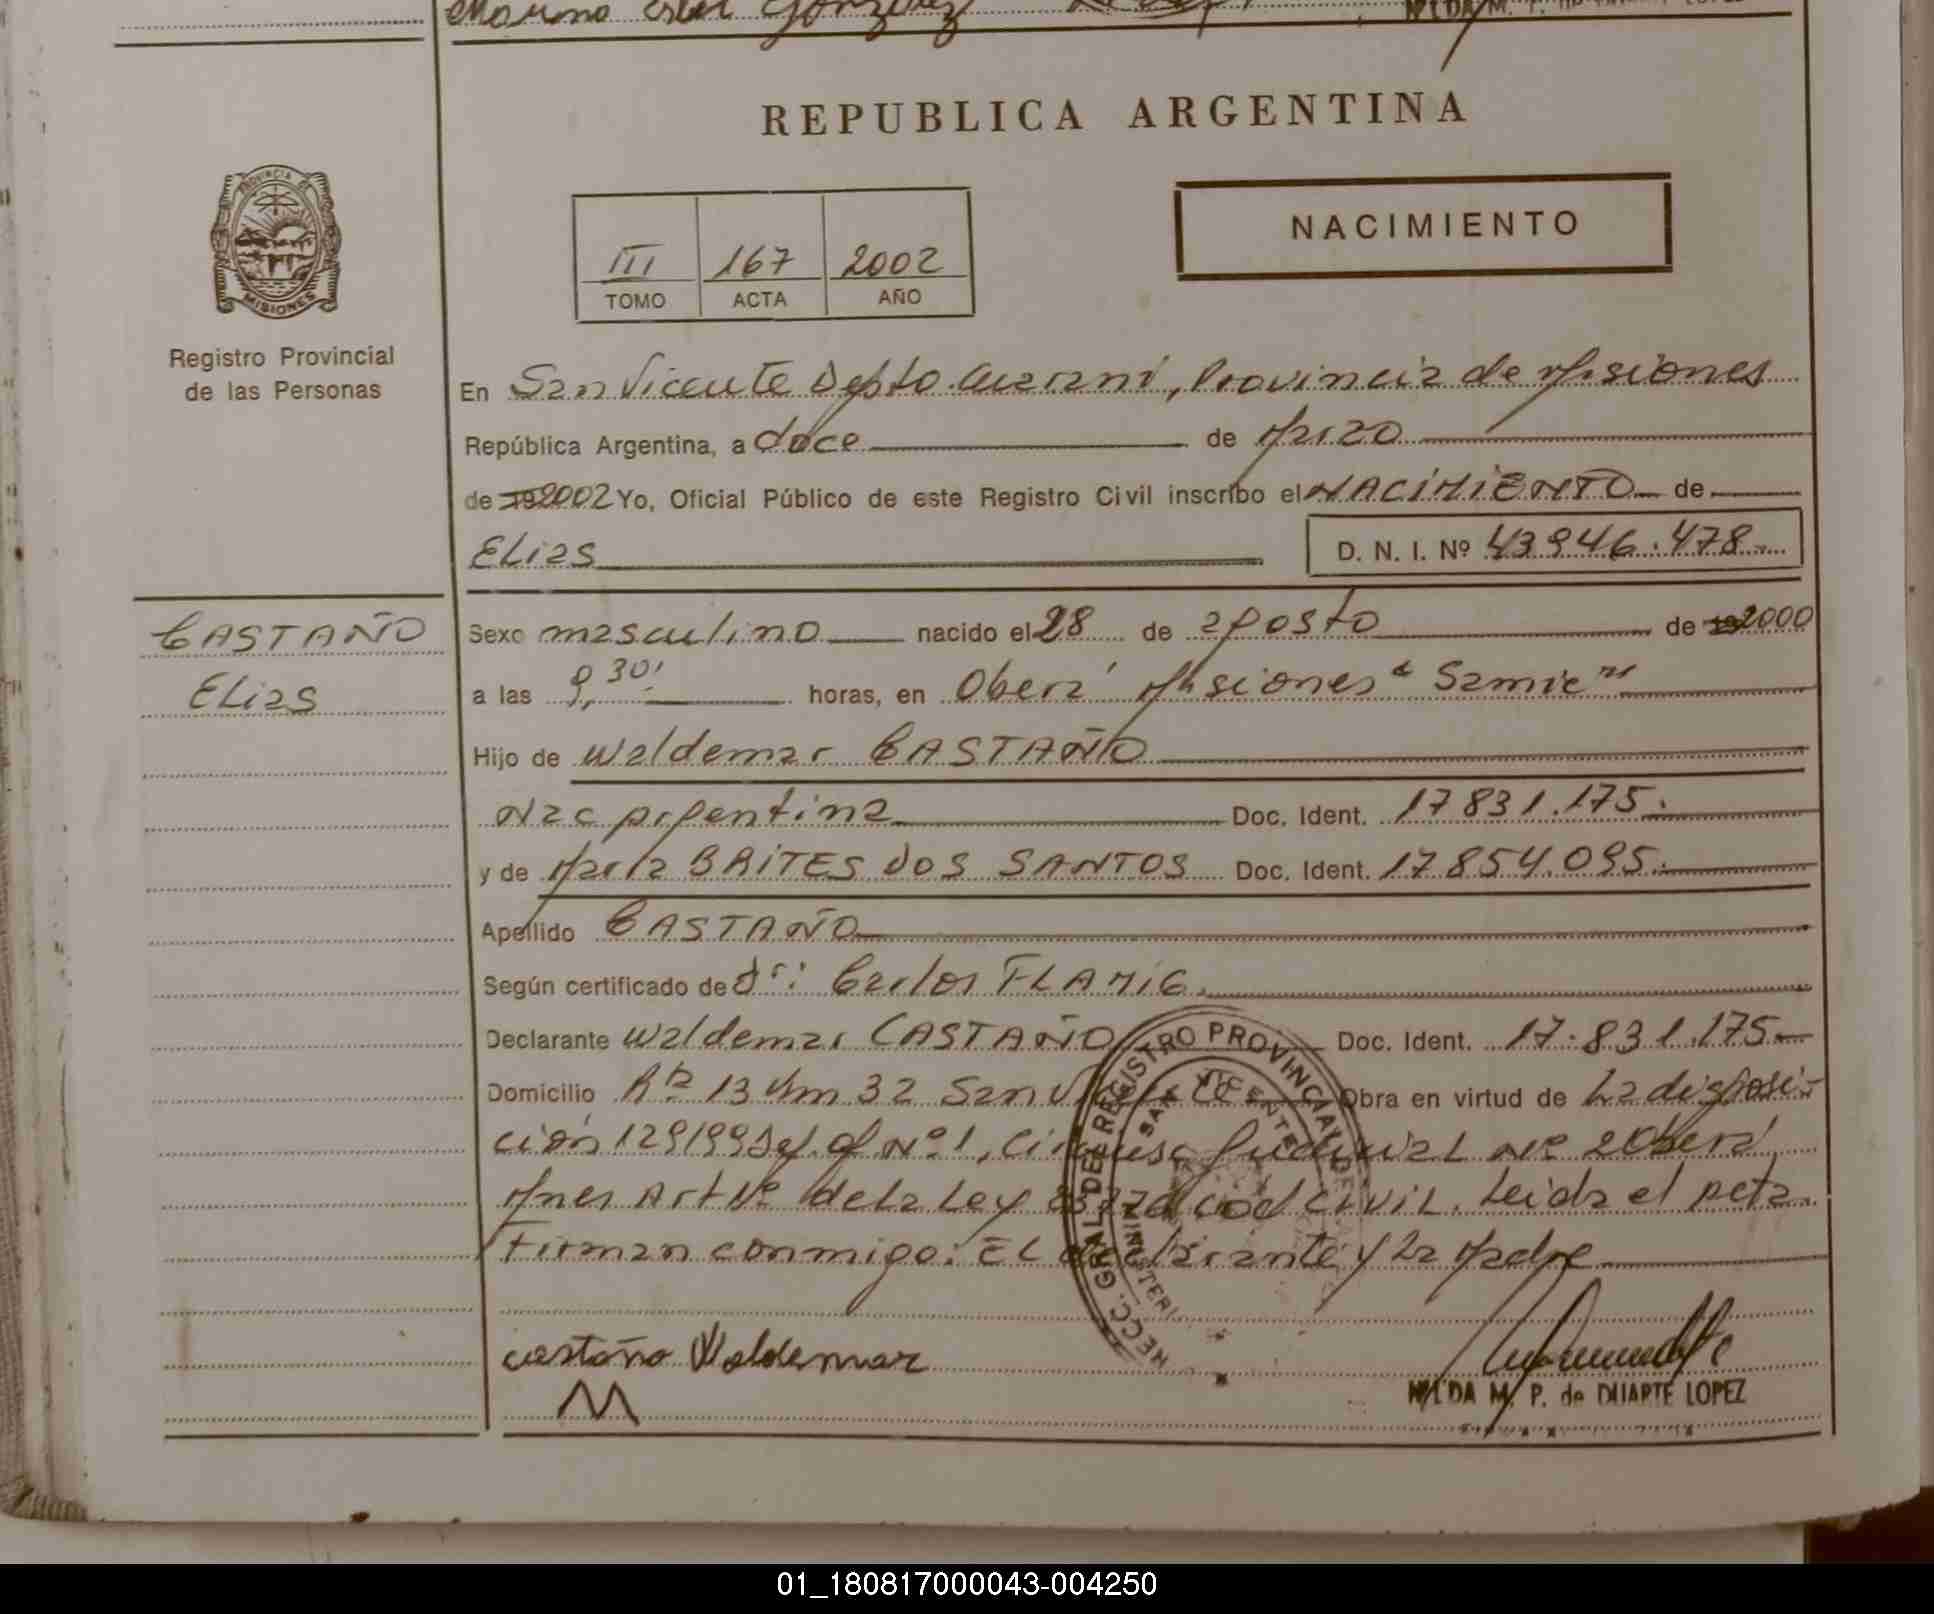 REPUBLICA ARGENTINA
PROVINCIA DE
MISIONES
Registro Provincial
de las Personas
NACIMIENTO
III 167 2002
TOMO ACTA AÑO
En San Vicente Depto Guarani, Provincia de Misiones
República Argentina, a doce de Marzo
de 192002 Yo, Oficial Público de este Registro Civil inscribo el NACIMIENTO de
Elias D. N. I. Nº 43946.478.-
CASTAÑO
Elias
Sexo masculino nacido el 28 de agosto de 192000
a las 9,30' horas, en Obera' Misiones "Samic"
Hijo de Waldemar CASTAÑO
Nac Argentina Doc. Ident. 17831.175.
y de Maria BRITES DOS SANTOS Doc. Ident. 17854.095.
Apellido CASTAÑO
Según certificado de Carlos FLAMIG.
Declarante Waldemar CASTAÑO Doc. Ident. 17.831.175.-
Domicilio Rta 13 Km 32 San Vicente Obra en virtud de La disposi-
ción 129/99 Nº 1, Judicial Nº 2 Obera'
Mnes Art Nº de la Ley Cod Civil. Leida el Acta
Firman conmigo: El declarante y La Madre
castaño Waldemar
NILDA M. P. de DUARTE LOPEZ
GRAL DEL REGISTRO PROVINCIAL DE
SAN VICENTE
01_180817000043-004250